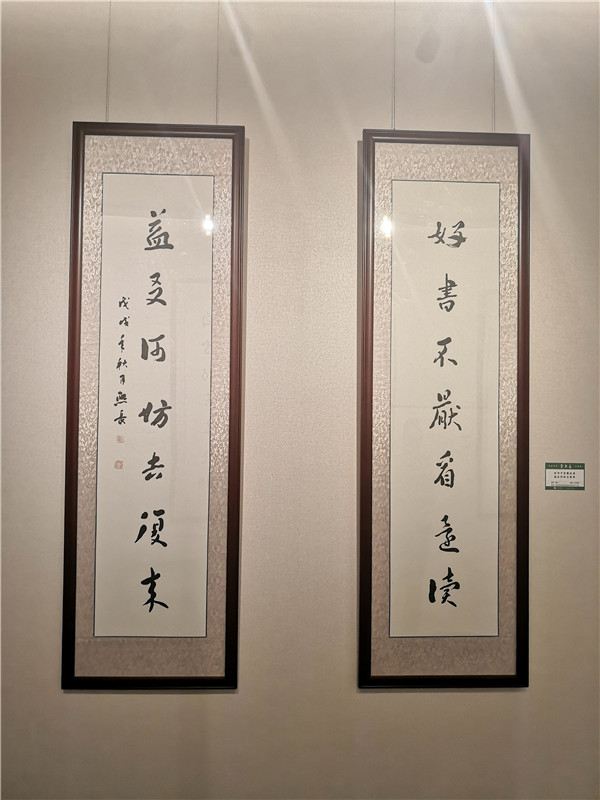 好書不厭看還讀
益友何妨去復來
戊戌年秋月